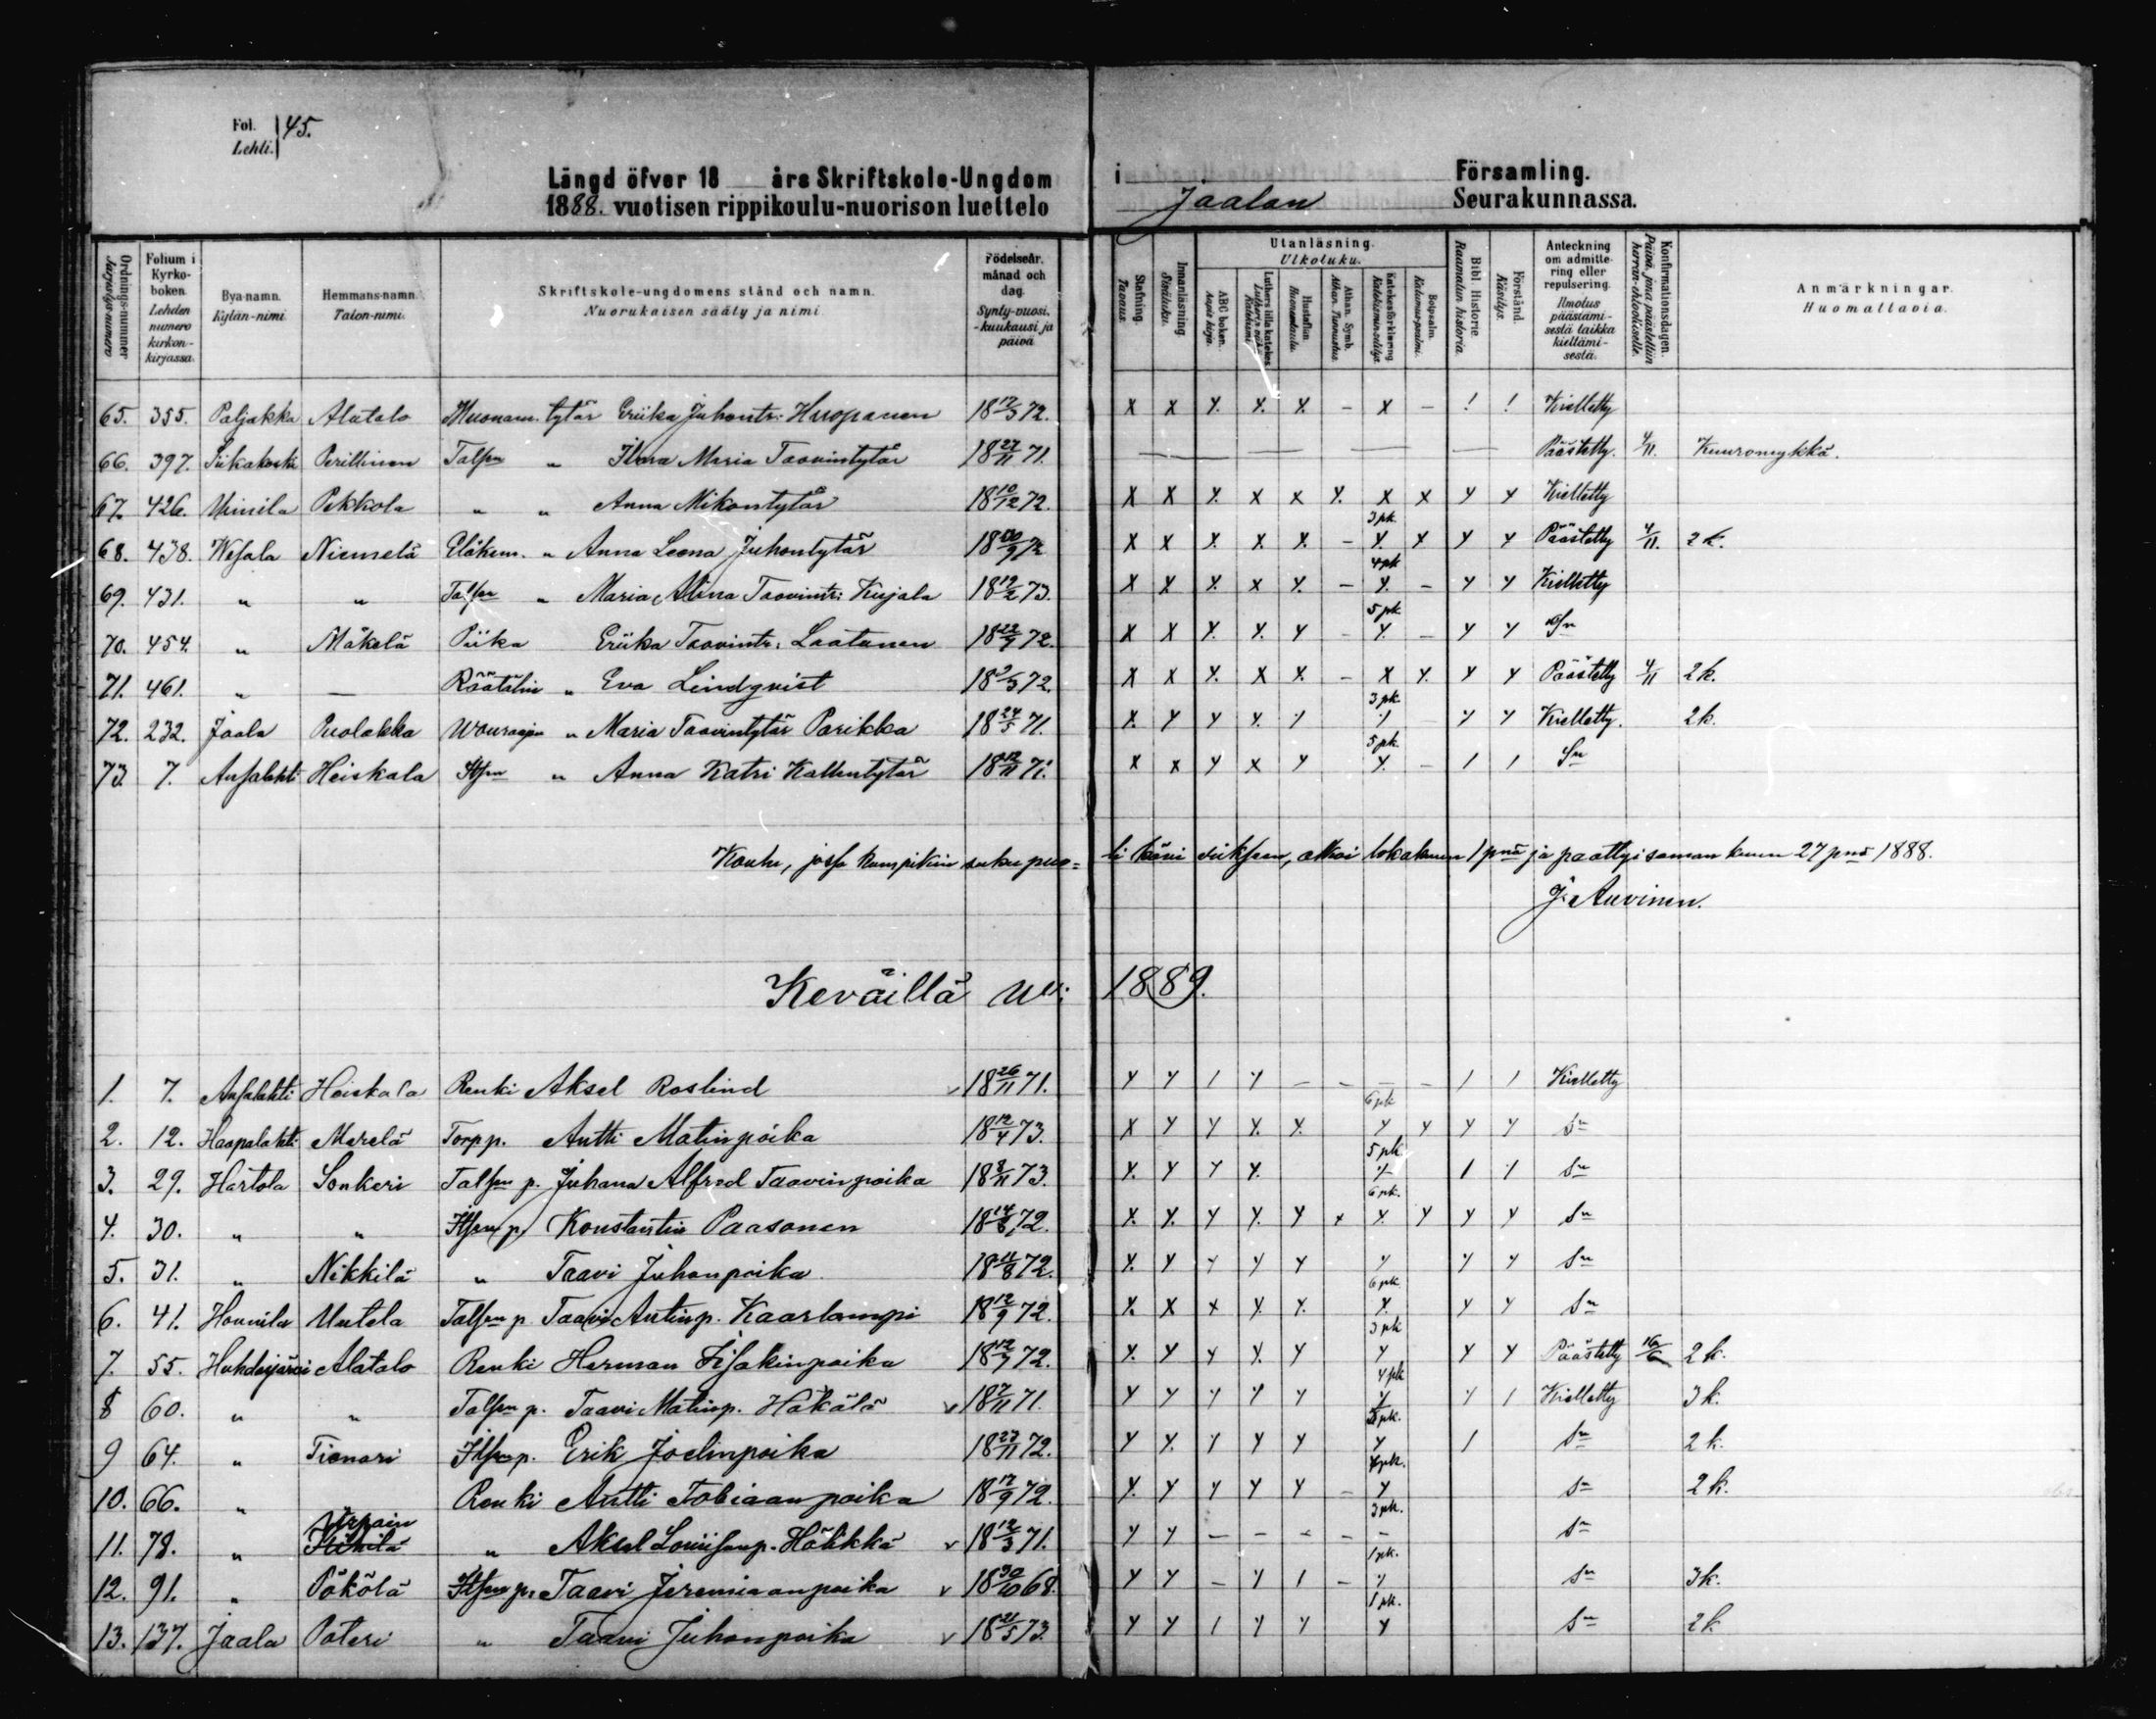 Fol. 45.
Lehti.
Längd öfver 18 års Skriftskole-Ungdom i Församling.
1888. vuotisen rippikoulu-nuorison luettelo Jaalan Seurakunnassa.
Ordnings-nummer Järjestys-numero
Folium i Kyrko-boken. Lehden numero kirkon-kirjassa.
Bya-namn. Kylän-nimi.
Hemmans-namn. Talon-nimi.
Skriftskole-ungdomens stånd och namn. Nuorukaisen sääty ja nimi
Födelseår, månad och dag. Synty-vuosi, -kuukausi ja päivä
Stafning. Tavaus.
Innanläsning. Sisäluku.
Utanläsning. Ulkoluku.
ABC boken. Aapis kirja.
Luthers lilla katekes
Hustaflan. Huoneentaulu.
Athan. Symb. Athan. Tunnustus.
Katekesförklaring. Katekismin selitys.
Botpsalm. Katumus-psalmi.
Bibl. Historie. Raamatun historia.
Förstånd. Käsitys.
Anteckning om admittering eller repulsering. Ilmotus päästämisestä taikka kieltämisestä.
Konfirmationsdagen. Päivä, jona päästettiin herran-ehtoolliselle.
Anmärkningar. Huomattavia.
65. 355. Paljakka Alatalo Muonam. tytär Eriika Juhontr: Huopanen 18 12/3 72. X X X. X. X. – X – ! ! Kielletty
66. 397. Siikakoski Perillinen Talsen „ Ilma Maria Taavintytär 18 27/11 71. Päästetty. 4/11. Kuuromykkä.
67. 426. Uimila Pekkola „ „ Anna Mikontytär 18 10/12 72. X X X. X X X. X X Y Y Kielletty
68. 438. Wesala Niemelä Eläkem. „ Anna Leena Juhontytär X X X. X. X. – 3 pk. X. X Y Y Päästetty 4/11. 2 k.
69. 431. „ „ Talsen „ Maria Miina Taavintr: Kujala 18 12/2 73. X X X. X X. – 4 pk X. – Y Y Kielletty
70. 454. „ Mäkelä Piika Eriika Taavintr: Laatunen 18 22/9 72. X X X. X. Y – 5 pk. X. – Y Y Sn
71. 461. „ — Räätälin „ Eva Lindqvist 18 2/3 72. X X X. X X. – X X. Y Y Päästetty 4/11 2 k.
72. 232. Jaala Puolakka Wouraajan „ Maria Taavintytär Parikka 18 24/5 71. X. Y Y X. Y 3 pk. Y Y Y Kielletty. 2 k.
73. 7. Ansalahti Heiskala Itsen „ Anna Katri Kallentytär 18 12/11 71. X X Y X Y 5 pk. Y. – 1 1 Sn
Koulu, jossa kumpikin sukupuoli kävi yhdessä, alkoi lokakuun 1 pnä ja päättyi saman kuun 27 pnä 1888.
J. Auvinen.
Keväillä vv: 1889.
1. 7. Ansalahti Heiskala Renki Aksel Roslind v 18 26/11 71. Y Y 1 Y – – – – 1 1 Kielletty
2. 12. Haapalahti Marelä Torp p. Antti Matinpoika 18 12/4 73. X Y Y X. X. 6 pk Y Y Y Y Sn
3. 29. Hartola Sonkeri Talsen p. Juhana Alfred Taavinpoika 18 8/11 73. X. Y Y X. 5 pk Y 1 Y Sn
4. 30. „ „ Itsen p. Konstantin Paasonen 18 14/8 72. X. X. Y X. Y x 6 pk. X. Y Y Y Sn
5. 31. „ Nikkilä „ Taavi Juhonpoika 18 11/8 72. X. Y Y Y Y Y Y Y Sn
6. 41. Hounila Uutela Talsen p. Taavi Antinp. Kaarlampi 18 12/9 72. X. X x X. X. 6 pk X. Y Y Sn
7. 55. Huhdasjärvi Alatalo Renki Herman Iisakinpoika 18 12/7 72. X. Y Y X. Y 3 pk Y Y Y Päästetty 16/6 2 k.
8 60. „ „ Talsen p. Taavi Matinp. Häkälä v 18 7/11 71. Y Y Y Y Y 4 pk Y Y 1 Kielletty 3 k.
9 64. „ Tienari Itsen p. Erik Joelinpoika 18 23/11 72. Y Y. 1 Y Y pk. Y 1 Sn 2 k.
10. 66. „ Renki Antti Tobiaanpoika 18 17/9 72. X. Y Y Y Y – pk. Y Sn 2 k.
11. 78. „ Urpain „ Aksel Louisenp. Hölkkä v 18 12/3 71. Y Y – – – – 3 pk. – Sn
12. 91. „ Pökölä Itsen p. Taavi Jeremiaanpoika v 18 30/10 68. Y Y – Y 1 – 1 pk. Y Sn 3 k.
13. 137. Jaala Poteri „ Taavi Juhonpoika v 18 21/5 73. Y Y 1 Y Y 1 pk. Y Sn 2 k